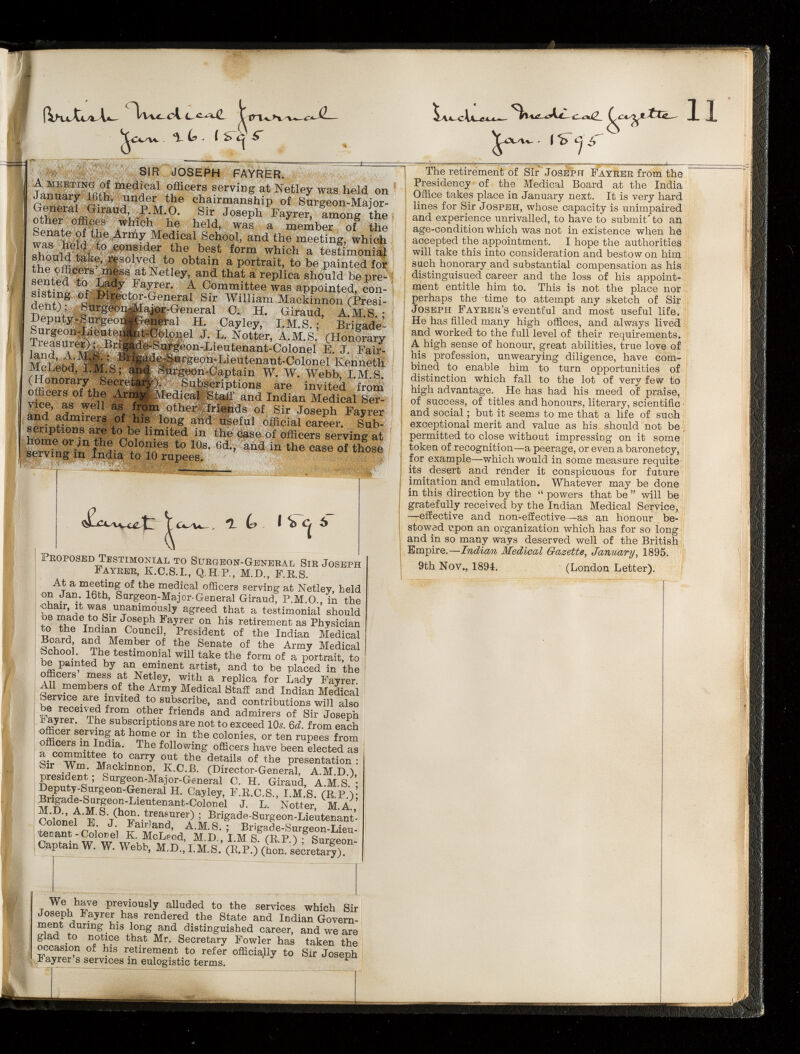 British Medical Journal
Jan. 26. 1895
SIR JOSEPH FAYRER.
A MEETING of medical officers serving at Netley was held on
January 16th, under the chairmanship of Surgeon-Major-
General Giraud, P.M.O. Sir Joseph Fayrer, among the
other offices which he held, was a member of the
Senate of the Army Medical School, and the meeting, which
was held to consider the best form which a testimonial
should take, resolved to obtain a portrait, to be painted for
the officers' mess at Netley, and that a replica should be pre-
sented to Lady Fayrer. A Committee was appointed, con-
sisting of Director-General Sir William Mackinnon (Presi-
dent); Surgeon-Major-General C. H. Giraud, A.M.S.;
Deputy-Surgeon-General H. Cayley, I.M.S.; Brigade-
Surgeon-Lieutenant-Colonel J. L. Notter, A.M.S. (Honorary
Treasurer); Brigade-Surgeon-Lieutenant-Colonel E. J. Fair-
land, A.M.S.; Brigade-Surgeon-Lieutenant-Colonel Kenneth
McLeod, I.M.S; and Surgeon-Captain W. W. Webb, I.M.S.
(Honorary Secretary). Subscriptions are invited from
officers of the Army Medical Staff and Indian Medical Ser-
vice, as well as from other friends of Sir Joseph Fayrer
and admirers of his long and useful official career. Sub-
scriptions are to be limited in the case of officers serving at
home or in the Colonies to 10s. 6d., and in the case of those
serving in India to 10 rupees.
Lancet Jan. 26. 1895
PROPOSED TESTIMONIAL TO SURGEON-GENERAL SIR JOSEPH
FAYRER, K.C.S.I., Q.H.P., M.D., F.R.S.
At a meeting of the medical officers serving at Netley, held
on Jan. 16th, Surgeon-Major-General Giraud, P.M.O., in the
chair, it was unanimously agreed that a testimonial should
be made to Sir Joseph Fayrer on his retirement as Physician
to the Indian Council, President of the Indian Medical
Board, and Member of the Senate of the Army Medical
School. The testimonial will take the form of a portrait, to
be painted by an eminent artist, and to be placed in the
officers' mess at Netley, with a replica for Lady Fayrer.
All members of the Army Medical Staff and Indian Medical
Service are invited to subscribe, and contributions will also
be received from other friends and admirers of Sir Joseph
Fayrer. The subscriptions are not to exceed 10s. 6d. from each
officer serving at home or in the colonies, or ten rupees from
officers in India. The following officers have been elected as
a committee to carry out the details of the presentation:
Sir Wm. Mackinnon, K.C.B. (Director-General, A.M.D.),
president; Surgeon-Major-General C. H. Giraud, A.M.S.;
Deputy-Surgeon-General H. Cayley, F.R.C.S., I.M.S. (R.P.);
Brigade-Surgeon-Lieutenant-Colonel J. L. Notter, M.A.,
M.D., A.M.S. (hon. treasurer); Brigade-Surgeon-Lieutenant-
Colonel E. J. Fairland, A.M.S.; Brigade-Surgeon-Lieu-
tenant-Colonel K. McLeod, M.D., I.M S. (R.P.); Surgeon-
Captain W. W. Webb, M.D., I.M.S. (R.P.) (hon. secretary).
We have previously alluded to the services which Sir
Joseph Fayrer has rendered the State and Indian Govern-
ment during his long and distinguished career, and we are
glad to notice that Mr. Secretary Fowler has taken the
occasion of his retirement to refer officially to Sir Joseph
Fayrer's services in eulogistic terms.
Indian Medical Gazette 11
Jan. 1895
The retirement of Sir JOSEPH FAYRER from the
Presidency of the Medical Board at the India
Office takes place in January next. It is very hard
lines for Sir JOSPEH, whose capacity is unimpaired
and experience unrivalled, to have to submit to an
age-condition which was not in existence when he
accepted the appointment. I hope the authorities
will take this into consideration and bestow on him
such honorary and substantial compensation as his
distinguisued career and the loss of his appoint-
ment entitle him to. This is not the place nor
perhaps the time to attempt any sketch of Sir
JOSEPH FAYRER'S eventful and most useful life.
He has filled many high offices, and always lived
and worked to the full level of their requirements.
A high sense of honour, great abilities, true love of
his profession, unwearying diligence, have com-
bined to enable him to turn opportunities of
distinction which fall to the lot of very few to
high advantage. He has had his meed of praise,
of success, of titles and honours, literary, scientific
and social; but it seems to me that a life of such
exceptional merit and value as his should not be
permitted to close without impressing on it some
token of recognition—a peerage, or even a baronetcy,
for example—which would in some measure requite
its desert and render it conspicuous for future
imitation and emulation. Whatever may be done
in this direction by the "powers that be" will be
gratefully received by the Indian Medical Service,
—effective and non-effective—as an honour be-
stowed upon an organization which has for so long
and in so many ways deserved well of the British
Empire.—Indian Medical Gazette, January, 1895.
9th Nov., 1894. (London Letter).